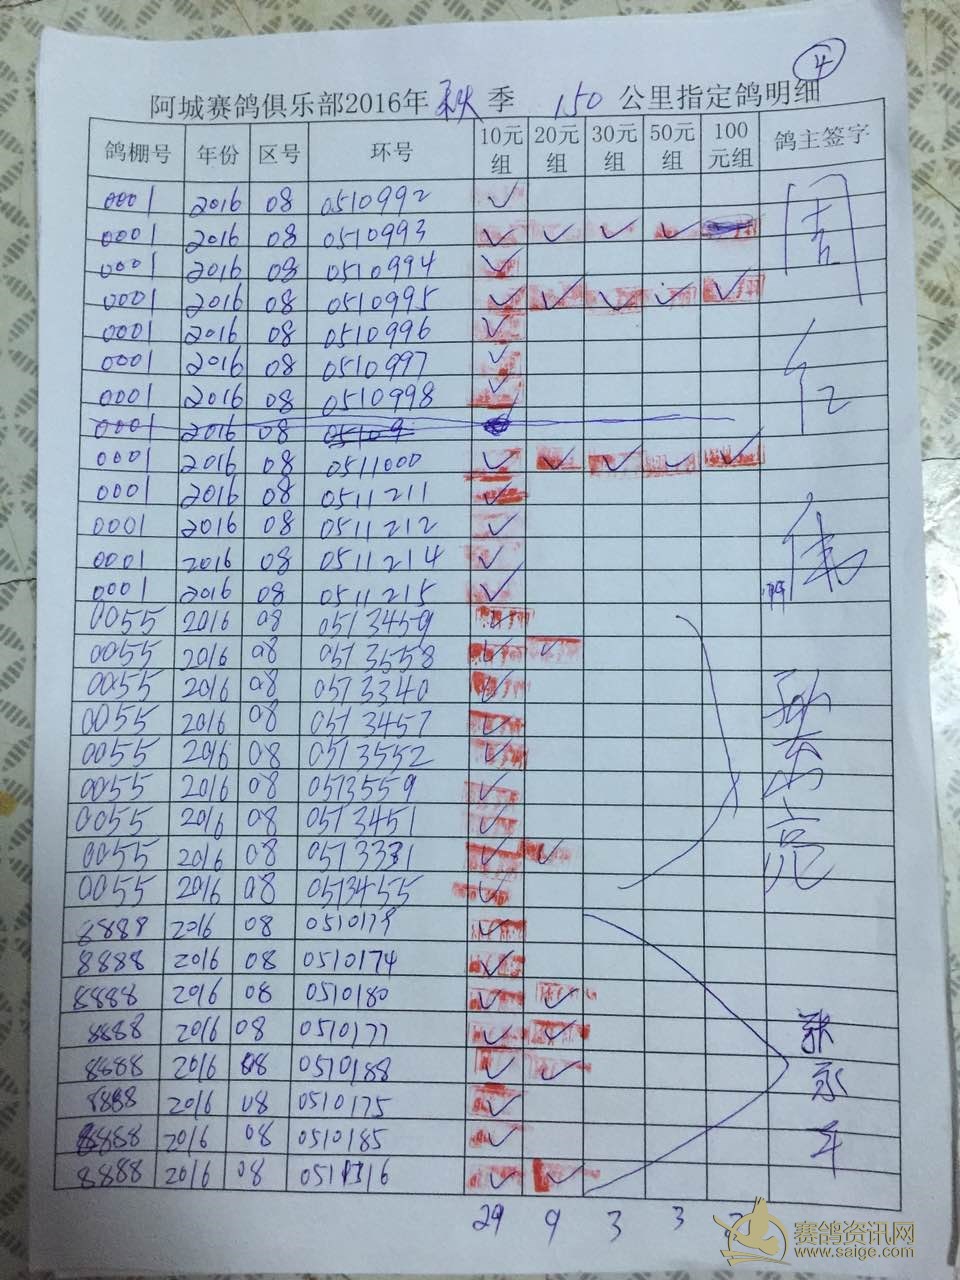 ④
阿城赛鸽俱乐部2016年秋季 150 公里指定鸽明细
鸽棚号 年份 区号 环号 10元组 20元组 30元组 50元组 100元组 鸽主签字
0001 2016 08 0510992 ✓
0001 2016 08 0510993 ✓ ✓ ✓ ✓
0001 2016 08 0510994 ✓
0001 2016 08 0510995 ✓ ✓ ✓ ✓ ✓
0001 2016 08 0510996 ✓
0001 2016 08 0510997 ✓
0001 2016 08 0510998 ✓
0001 2016 08 05109
0001 2016 08 0511000 ✓ ✓ ✓ ✓ ✓
0001 2016 08 0511211 ✓
0001 2016 08 0511212 ✓
0001 2016 08 0511214 ✓
0001 2016 08 0511215 ✓
周
伟
0055 2016 08 0513459 ✓
0055 2016 08 0513558 ✓ ✓
0055 2016 08 0513340 ✓
0055 2016 08 0513457 ✓
0055 2016 08 0513552 ✓
0055 2016 08 0513559 ✓
0055 2016 08 0513451 ✓
0055 2016 08 0513331 ✓ ✓
0055 2016 08 0513455 ✓
亮
8888 2016 08 0510179 ✓
8888 2016 08 0510174 ✓
8888 2016 08 0510180 ✓ ✓
8888 2016 08 0510177 ✓ ✓
8888 2016 08 0510188 ✓ ✓
8888 2016 08 0510175 ✓
8888 2016 08 0510185 ✓
8888 2016 08 0511316 ✓ ✓
永
29 9 3 3
赛鸽资讯网
www.saige.com